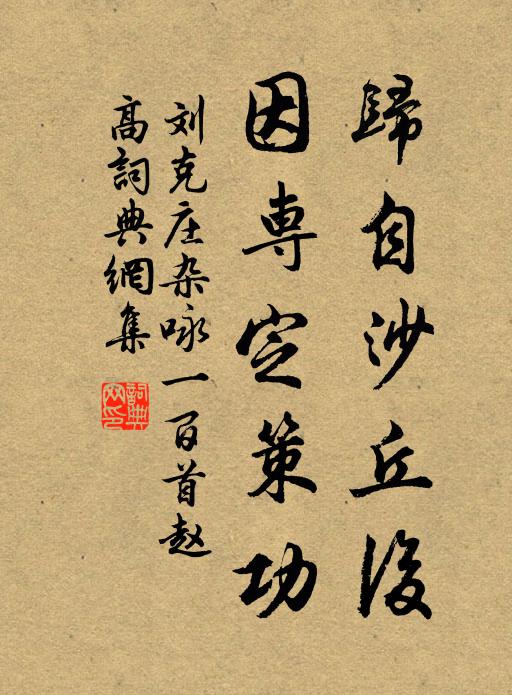 歸自沙丘後
因専定策功
刘克庄杂咏一百首赵
高詞典網集
詞典
网印